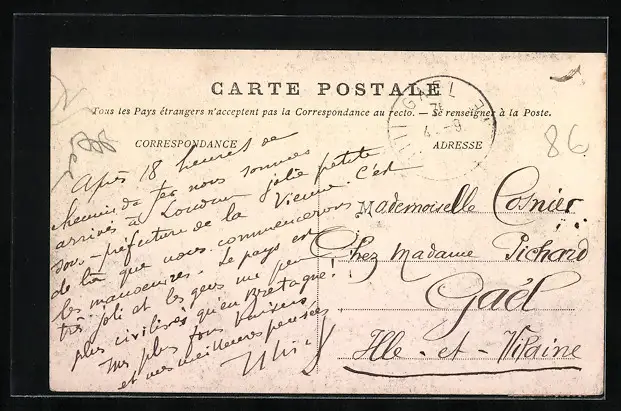 CARTE POSTALE
Tous les Pays étrangers n'acceptent pas la Correspondance au recto. — Se renseigner à la Poste.
CORRESPONDANCE
ADRESSE
86
GAEL
Après 18 heures de
chemin de fer nous sommes
arrivés à Loudun jolie petite
sous-préfecture de la Vienne. C'est
de là que nous commencerons
les manoeuvres. Le pays est
très joli et les gens un peu
plus civilisés qu'en Bretagne!
Mes plus doux baisers
et mes meilleures pensées
Mademoiselle Cosnier
Chez Madame Pichard
Gaël
Ille-et-Vilaine